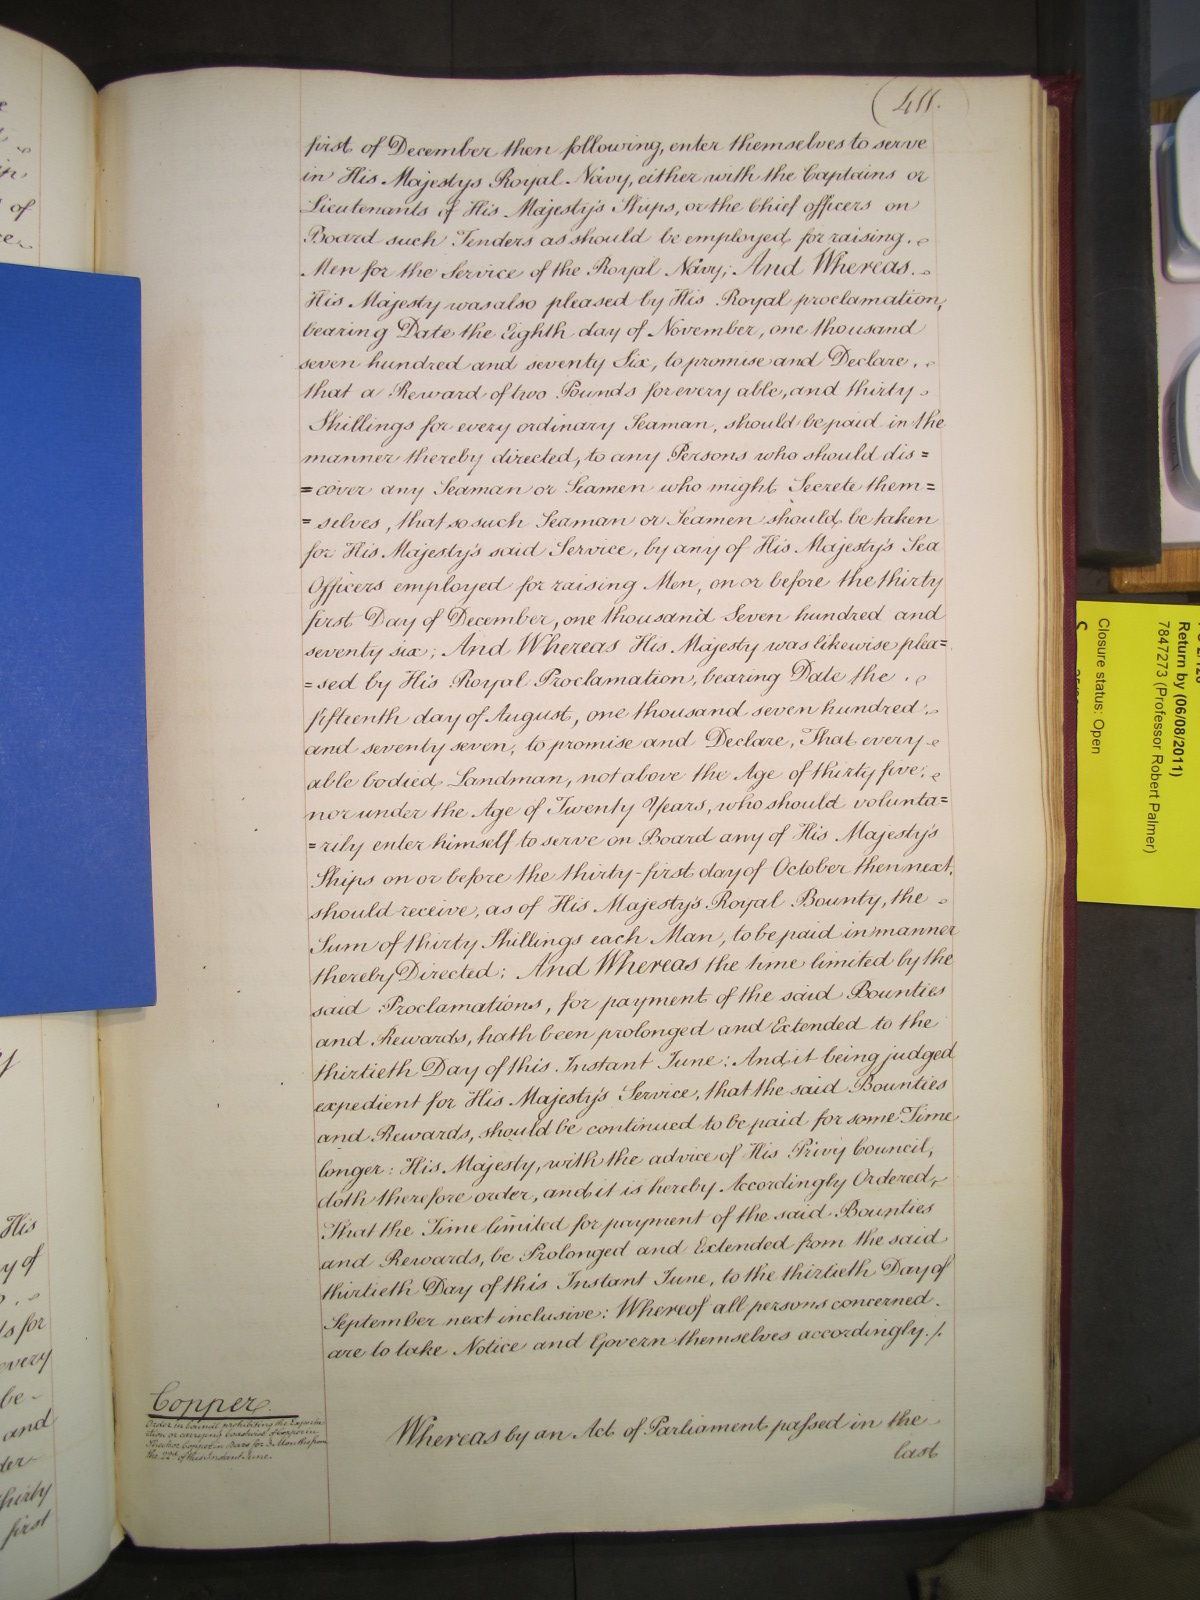 411.
first of December then following, enter themselves to serve
in His Majestys Royal Navy, either with the Captains or
Lieutenants of His Majesty's Ships, or the Chief officers on
Board such Tenders as should be employed for raising.
Men for the Service of the Royal Navy; And Whereas.
His Majesty was also pleased by His Royal proclamation,
bearing Date the Eighth day of November, one thousand
seven hundred and seventy Six, to promise and Declare,
that a Reward of two Pounds for every able, and thirty
Shillings for every ordinary Seaman, should be paid in the
manner thereby directed, to any Persons who should dis=
=cover any Seaman or Seamen who might Secrete them=
=selves, that so such Seaman or Seamen should be taken
for His Majesty's said Service, by any of His Majesty's Sea
Officers employed for raising Men, on or before the thirty
first Day of December, one thousand Seven hundred and
seventy six; And Whereas His Majesty was likewise plea=
=sed by His Royal Proclamation, bearing Date the
fifteenth day of August, one thousand seven hundred
and seventy seven, to promise and Declare, That every
able bodied Landman, not above the Age of thirty five,
nor under the Age of Twenty Years, who should volunta=
=rily enter himself to serve on Board any of His Majesty's
Ships on or before the thirty-first day of October then next,
should receive, as of His Majesty's Royal Bounty, the
Sum of thirty Shillings each Man, to be paid in manner
thereby Directed: And Whereas the time limited by the
said Proclamations, for payment of the said Bounties
and Rewards, hath been prolonged and Extended to the
thirtieth Day of this Instant June: And it being judged
expedient for His Majesty's Service, that the said Bounties
and Rewards, should be continued to be paid for some Time
longer: His Majesty, with the advice of His Privy Council,
doth therefore order, and it is hereby Accordingly Ordered,
That the Time limited for payment of the said Bounties
and Rewards, be Prolonged and Extended from the said
thirtieth Day of this Instant June, to the thirtieth Day of
September next inclusive: Whereof all persons concerned
are to take Notice and Govern themselves accordingly./.
Copper.
Order in Council prohibiting the Exporta
tion or carrying Coastwise of Copper in
the 22d of this Instant June.
Whereas by an Act of Parliament passed in the
last
of
His
y of
ts for
every
be-
and
der-
thirty
first
Return by (06/08/2011)
7847273 (Professor Robert Palmer)
Closure status: Open